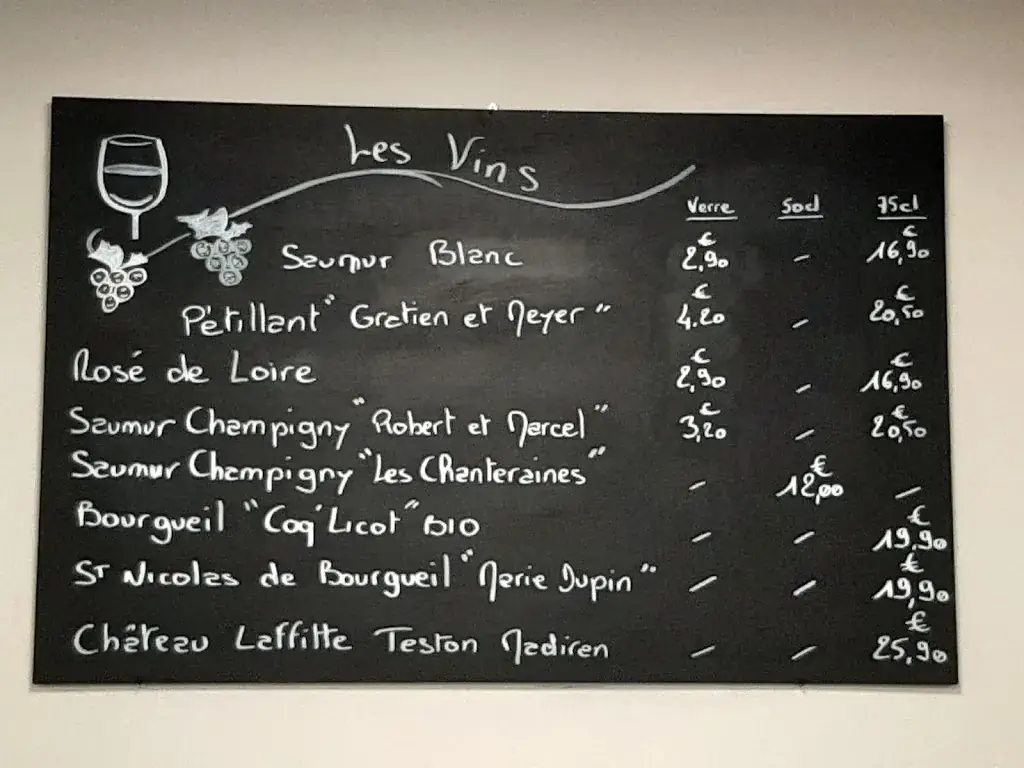 Les Vins
Verre 50cl 75cl
Saumur Blanc 2,90€ - 16,90€
Pétillant "Gratien et Meyer" 4.20€ - 20,50€
Rosé de Loire 2,90€ - 16,90€
Saumur Champigny "Robert et Marcel" 3,20€ - 20,50€
Saumur Champigny "Les Chanteraines" - 12,00€ -
Bourgueil "Coq'Licot" BIO - - 19,90€
ST Nicolas de Bourgueil "Marie Dupin" - - 19,90€
Château Laffitte Teston Madiran - - 25,90€